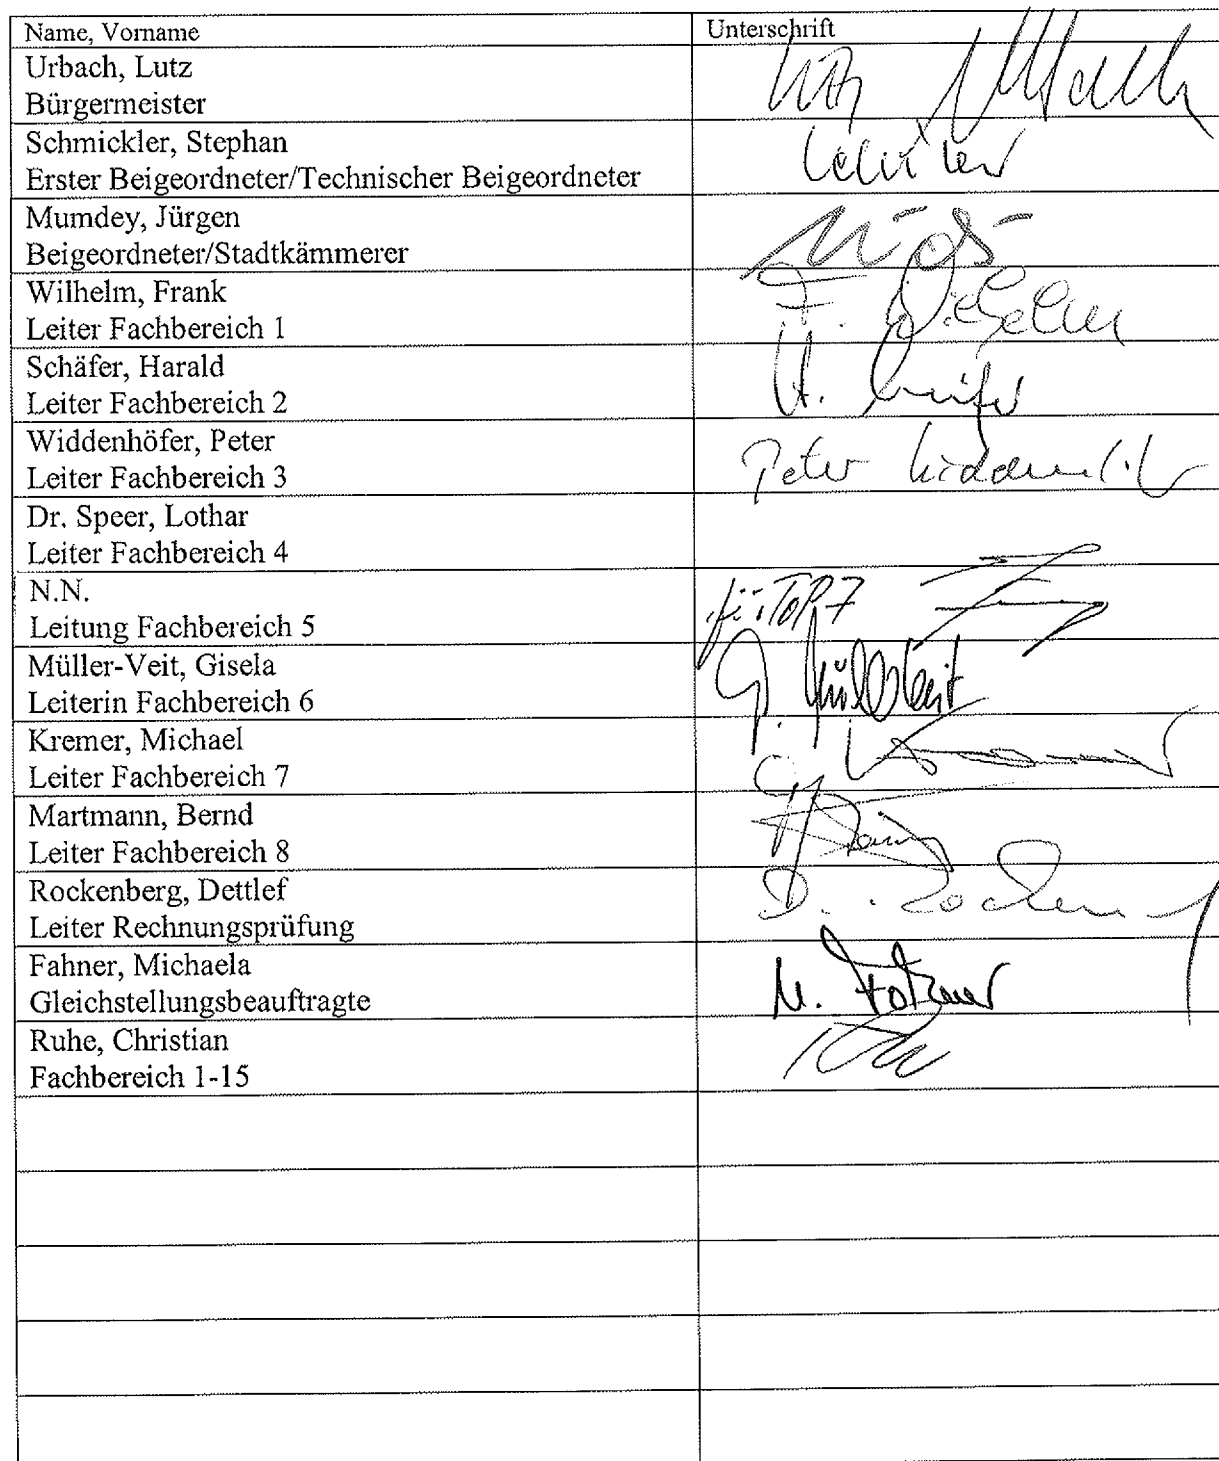 Name, Vorname
Unterschrift
Urbach, Lutz
Bürgermeister
Schmickler, Stephan
Erster Beigeordneter/Technischer Beigeordneter
Mumdey, Jürgen
Beigeordneter/Stadtkämmerer
Wilhelm, Frank
Leiter Fachbereich 1
F. Wilhelm
Schäfer, Harald
Leiter Fachbereich 2
H.
Widdenhöfer, Peter
Leiter Fachbereich 3
Peter
Dr. Speer, Lothar
Leiter Fachbereich 4
N.N.
Leitung Fachbereich 5
TOP 7
Müller-Veit, Gisela
Leiterin Fachbereich 6
G.
Kremer, Michael
Leiter Fachbereich 7
Martmann, Bernd
Leiter Fachbereich 8
Rockenberg, Dettlef
Leiter Rechnungsprüfung
D.
Fahner, Michaela
Gleichstellungsbeauftragte
M. Fahner
Ruhe, Christian
Fachbereich 1-15